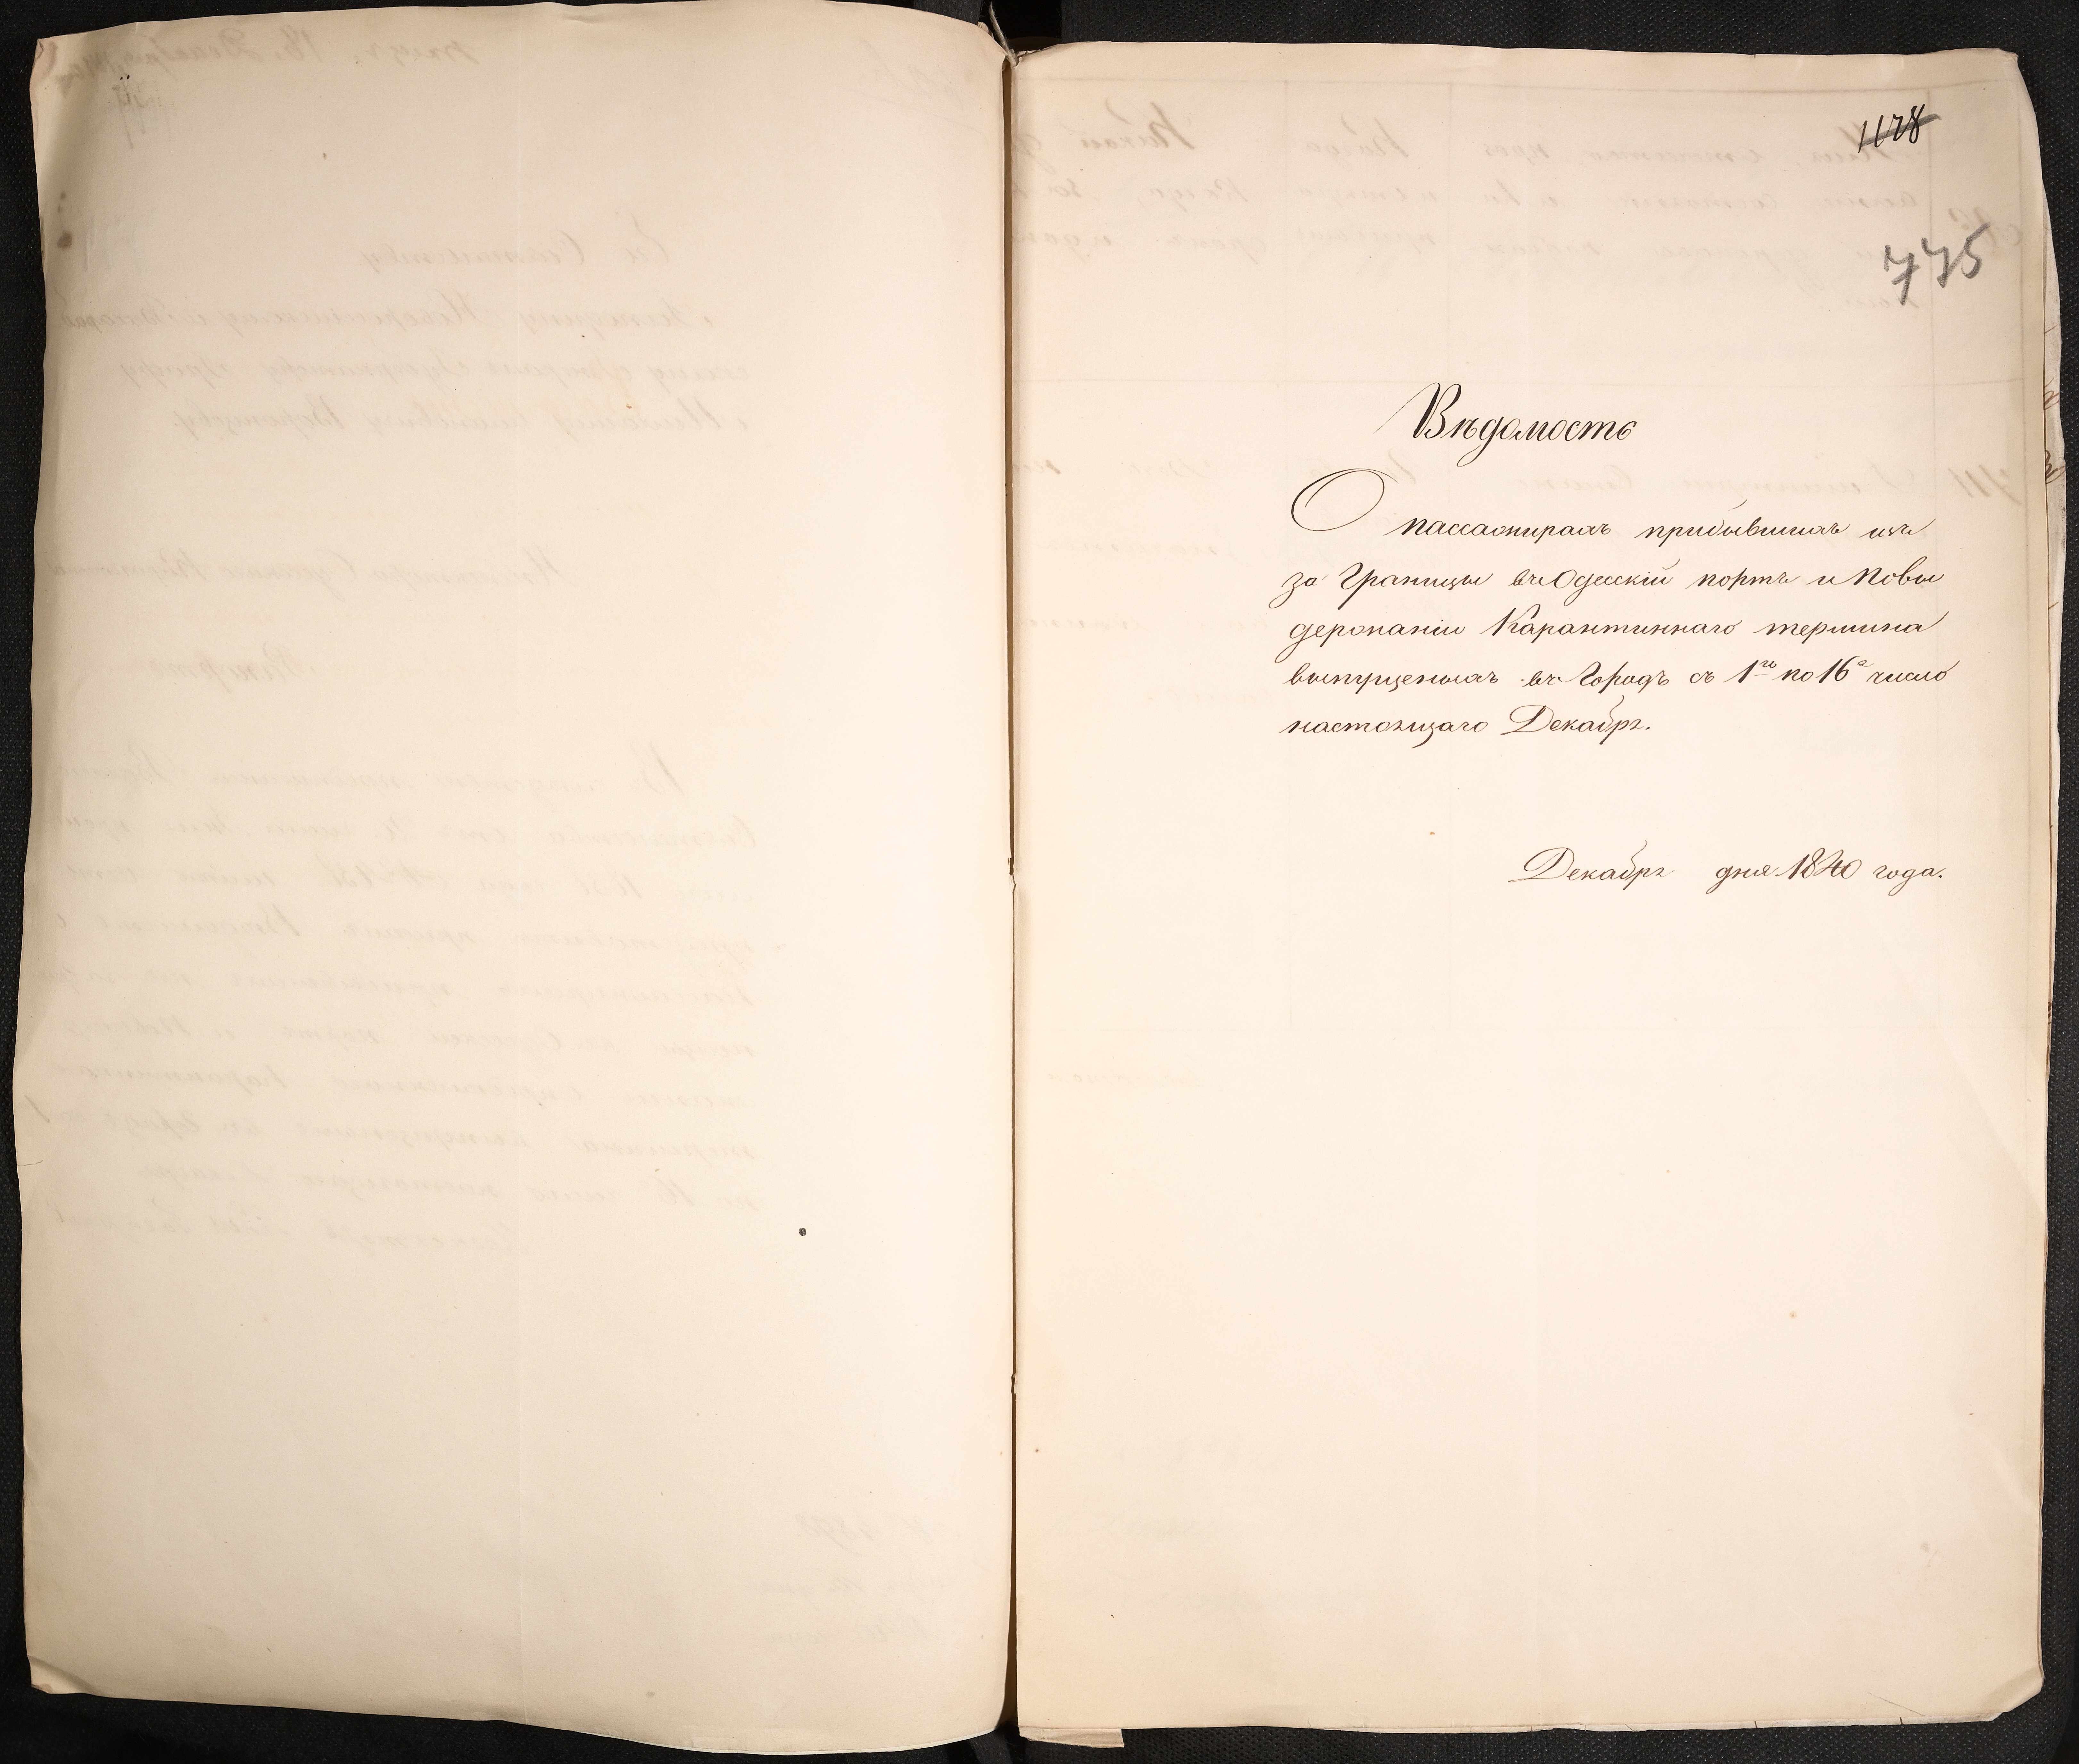 1128
775
Вѣдомость
О пассажирахъ прибывшихъ изъ
за Границы въ Одесскій портъ и Повы
держаніи Карантиннаго термина
выпущеныхъ въ Городъ съ 1го по 16е число
настоящаго Декабря.
Декабря дня 1840 года.